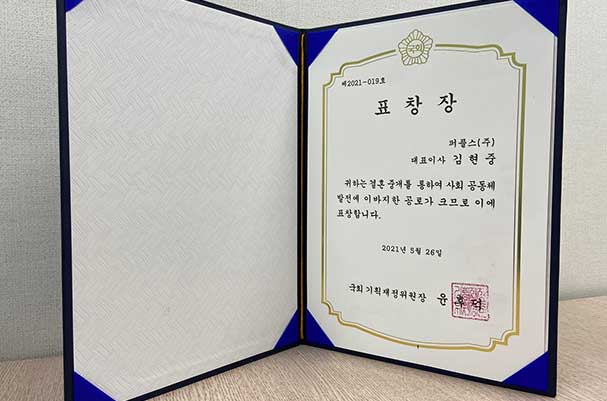 국회
제2021-019호
표 창 장
퍼플스(주)
대표이사 김 현 중
귀하는 결혼 중개를 통하여 사회 공동체
발전에 이바지한 공로가 크므로 이에
표창합니다.
2021년 5월 26일
국회 기획재정위원장 윤 후 덕